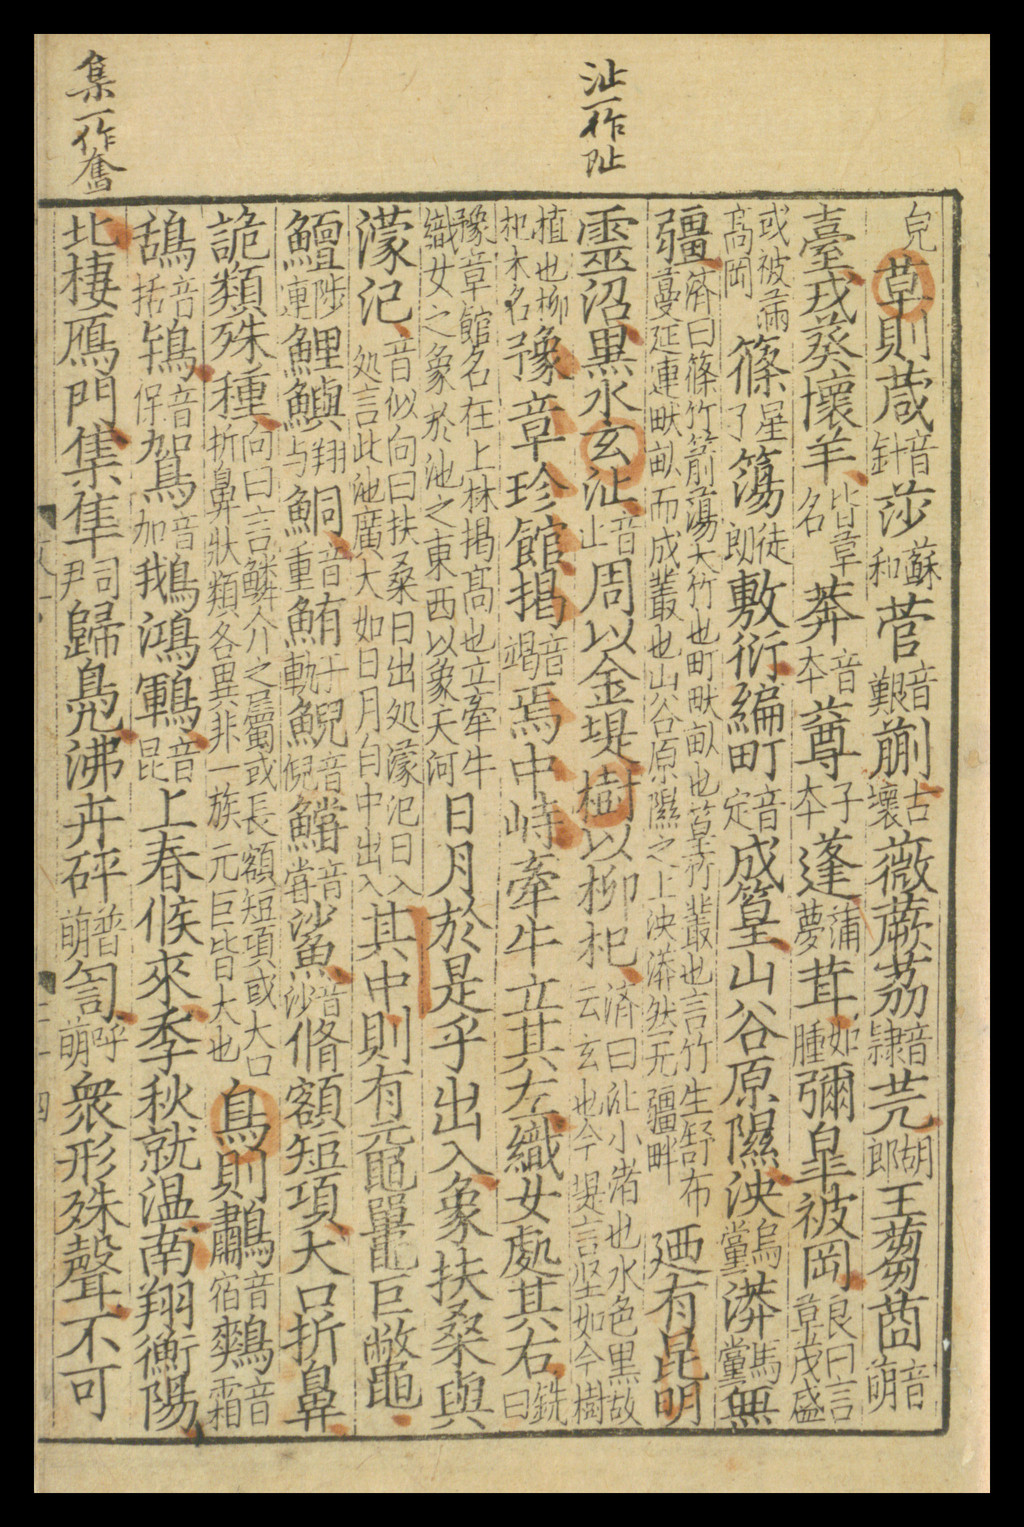 沚一作阯
集一作奮
皃草則葴音針莎蘇和菅音艱蒯古壊薇蕨荔音隷苀胡郎王蒭莔音萌
臺戎葵懷羊皆草名莽音本蓴子本蓬蒲夢茸如腫彌皐被岡良曰言草茂盛
或被滿髙岡篠星了簜徒朗敷衍編町音定成篁山谷原隰泱烏黨漭馬黨無
疆濟曰篠竹箭簜大竹也町畎畝也篁竹叢也言竹生舒布蔓延連畎畝而成叢也山谷原隰之上泱漭然无疆畔廼有昆明
靈沼黒水玄沚音止周以金堤樹以柳杞済曰沚小渚也水色黒故云玄也今堤言坚如今樹
植也柳杞木名豫章珍館掲音竭焉中峙牽牛立其左織女處其右銑曰
豫章館名在上林掲髙也立牽牛織女之象於池之東西以象天河日月於是乎出入象扶桑與
濛汜音似向曰扶桑日出処濛汜日入処言此池廣大如日月自中出入其中則有元黿鼉巨鱉龜
鱣陟連鯉鱮翔与鮦音重鮪于軌鯢音倪鱨音甞鯊音沙脩額短項大口折鼻
詭類殊種向曰言鱗介之屬或長額短項或大口折鼻狀類各異非一族元巨皆大也鳥則鷫音宿鷞音霜
鴰音括鴇音保鴐音加鵝鴻鶤音昆上春候來季秋就温南翔衡陽
北棲鴈門集隼司尹歸鳧沸卉砰普萌訇呼萌衆形殊聲不可